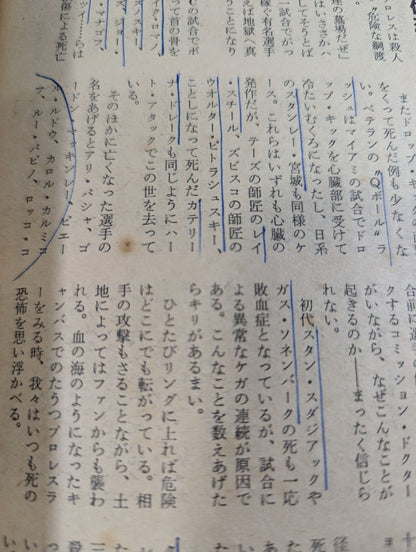 ロレスは殺人
"危険な綱渡
達の墓場だぜ」
はいささかハ
してそうとば
一試合でがっ
えば地獄へ真
うことになり
Cの試合でボ
って首の骨を
イク・ロマノ
ズイスキー、
ス、ジョー・
・マナゴフ、
ッイ……らは
傷による死亡
まだドロップ・
をくって死んだ例も少なくな
い。ベテランの〝Qボール〟ラ
ッシュはマイアミの試合でドロ
ップ・キックを心臓部に受けて
冷たいむくろになったし、日系
のスタンレー・宮城も同様のケ
ース。これらはいずれも心臓の
発作だが、テーズの師匠のレイ
・スチール、ズビスコの師匠の
ウオルター・ピトラシュスキー、
ことしになって死んだカテリー
ナ・ドレークも同じようにハー
ト・アタックでこの世を去って
いる。
そのほかに亡くなった選手の
名をあげるとアリ・パシャ、ゴ
ードン・マッキンレー、ピエー
ル・ルドウ、カロル・カルミコ
フ、ルー・パピノ、ロッコ・コ
合前に
クするコミッション・ドクター
がいながら、なぜこんなことが
起きるのか――まったく信じら
れない。
初代スタン・スタジアックや
ガス・ソネンバークの死も一応
敗血症となっているが、試合に
よる異常なケガの連続が原因で
ある。こんなことを数えあげた
らキリがあるまい。
ひとたびリングに上れば危険
はどこにでも転がっている。相
手の攻撃もさることながら、土
地によってはファンからも襲わ
れる。血の海のようになったキ
ャンバスでのたうつプロレスラ
ーをみる時、我々はいつも死の
恐怖を思い浮かべる。